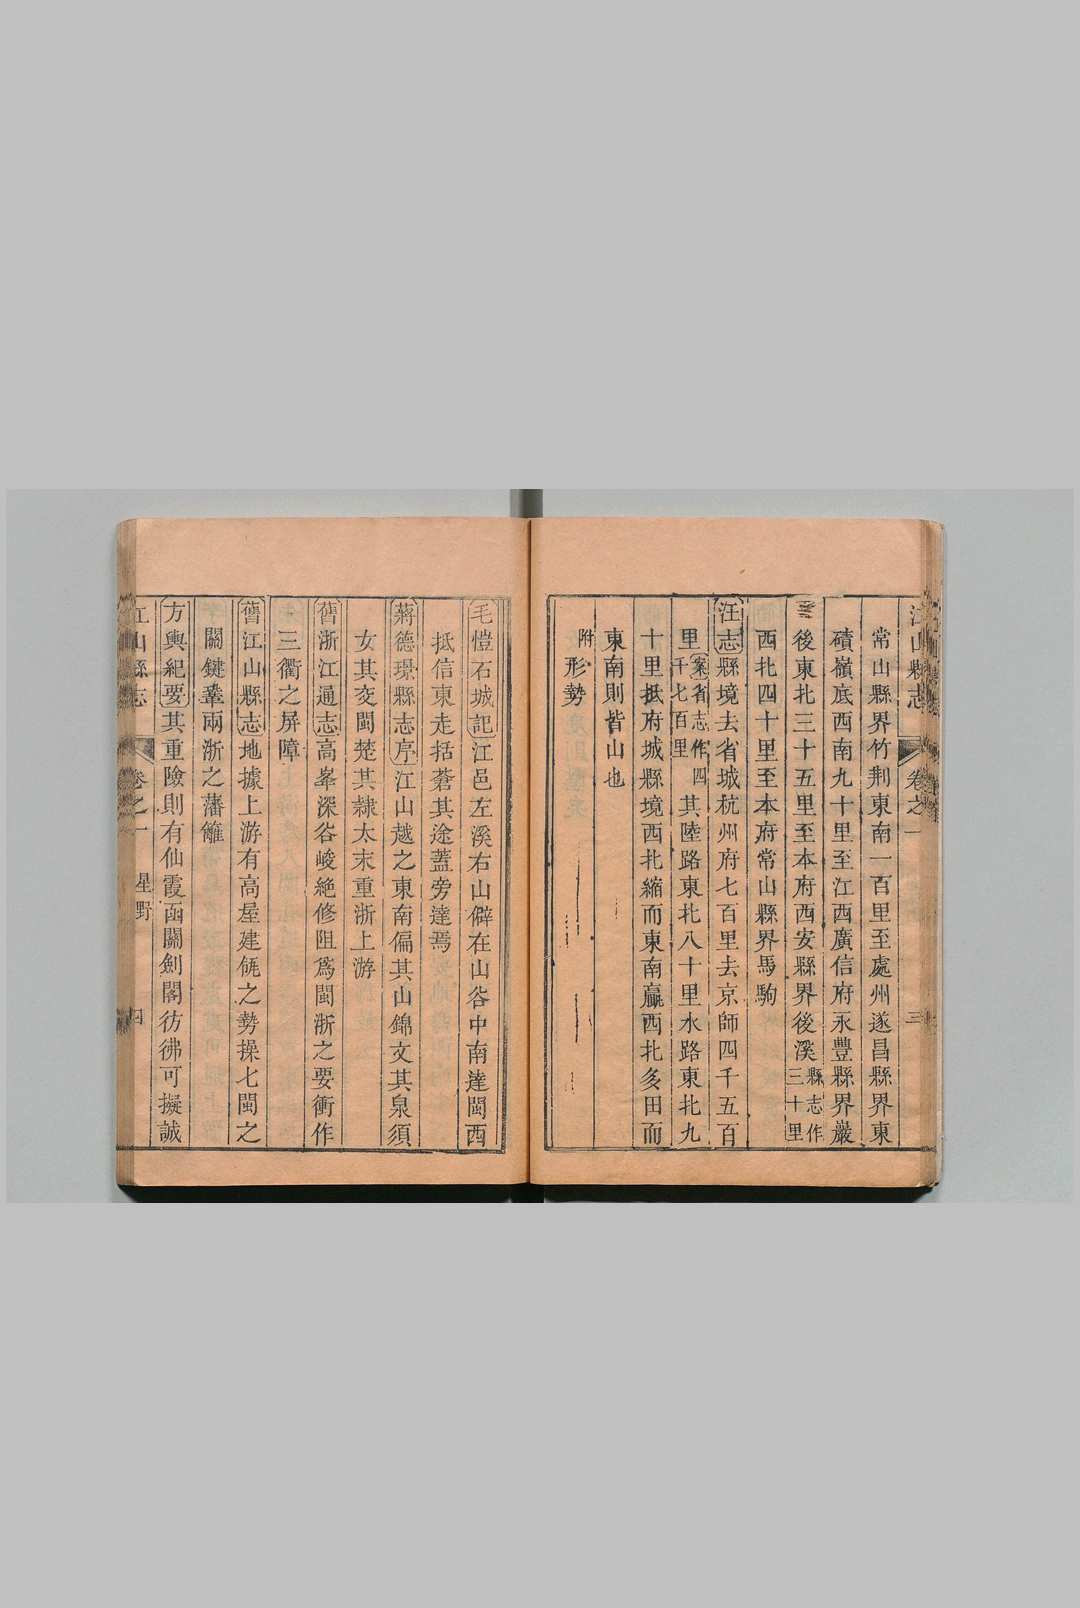 江山縣志 卷之一 三
常山縣界竹荆東南一百里至處州遂昌縣界東
磧嶺底西南九十里至江西廣信府永豐縣界巖
後東北三十五里至本府西安縣界後溪縣志作三十里
西北四十里至本府常山縣界馬駒
汪志縣境去省城杭州府七百里去京師四千五百
里案省志作四千七百里其陸路東北八十里水路東北九
十里抵府城縣境西北縮而東南贏西北多田而
東南則皆山也
附形勢
毛愷石城記江邑左溪右山僻在山谷中南達閩西
抵信東走括蒼其途蓋旁達焉
蔣德璟縣志序江山越之東南偏其山錦文其泉須
女其交閩楚其隷太末重浙上游
舊浙江通志高峯深谷峻絶修阻爲閩浙之要衝作
三衢之屏障
舊江山縣志地據上游有高屋建瓴之勢操七閩之
關鍵鞏兩浙之藩籬
方輿紀要其重險則有仙霞函關劍閣彷彿可擬誠
江山縣志 卷之一 星野 四